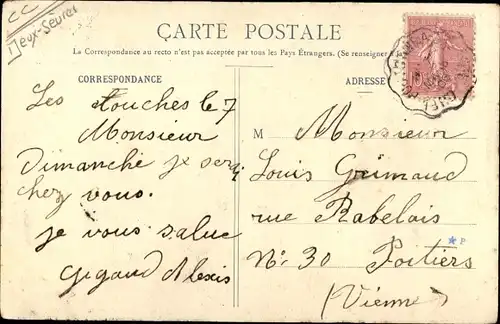 CC
Deux-Sèvres
CARTE POSTALE
La Correspondance au recto n'est pas acceptée par tous les Pays Étrangers. (Se renseigner
CORRESPONDANCE
ADRESSE
Les Touches le 7
Monsieur
Dimanche je serai
chez vous.
je vous salue
Gigaud Alexis
M Monsieur
Louis Grimaud
rue Rabelais
No. 30 Poitiers
(Vienne)
* P